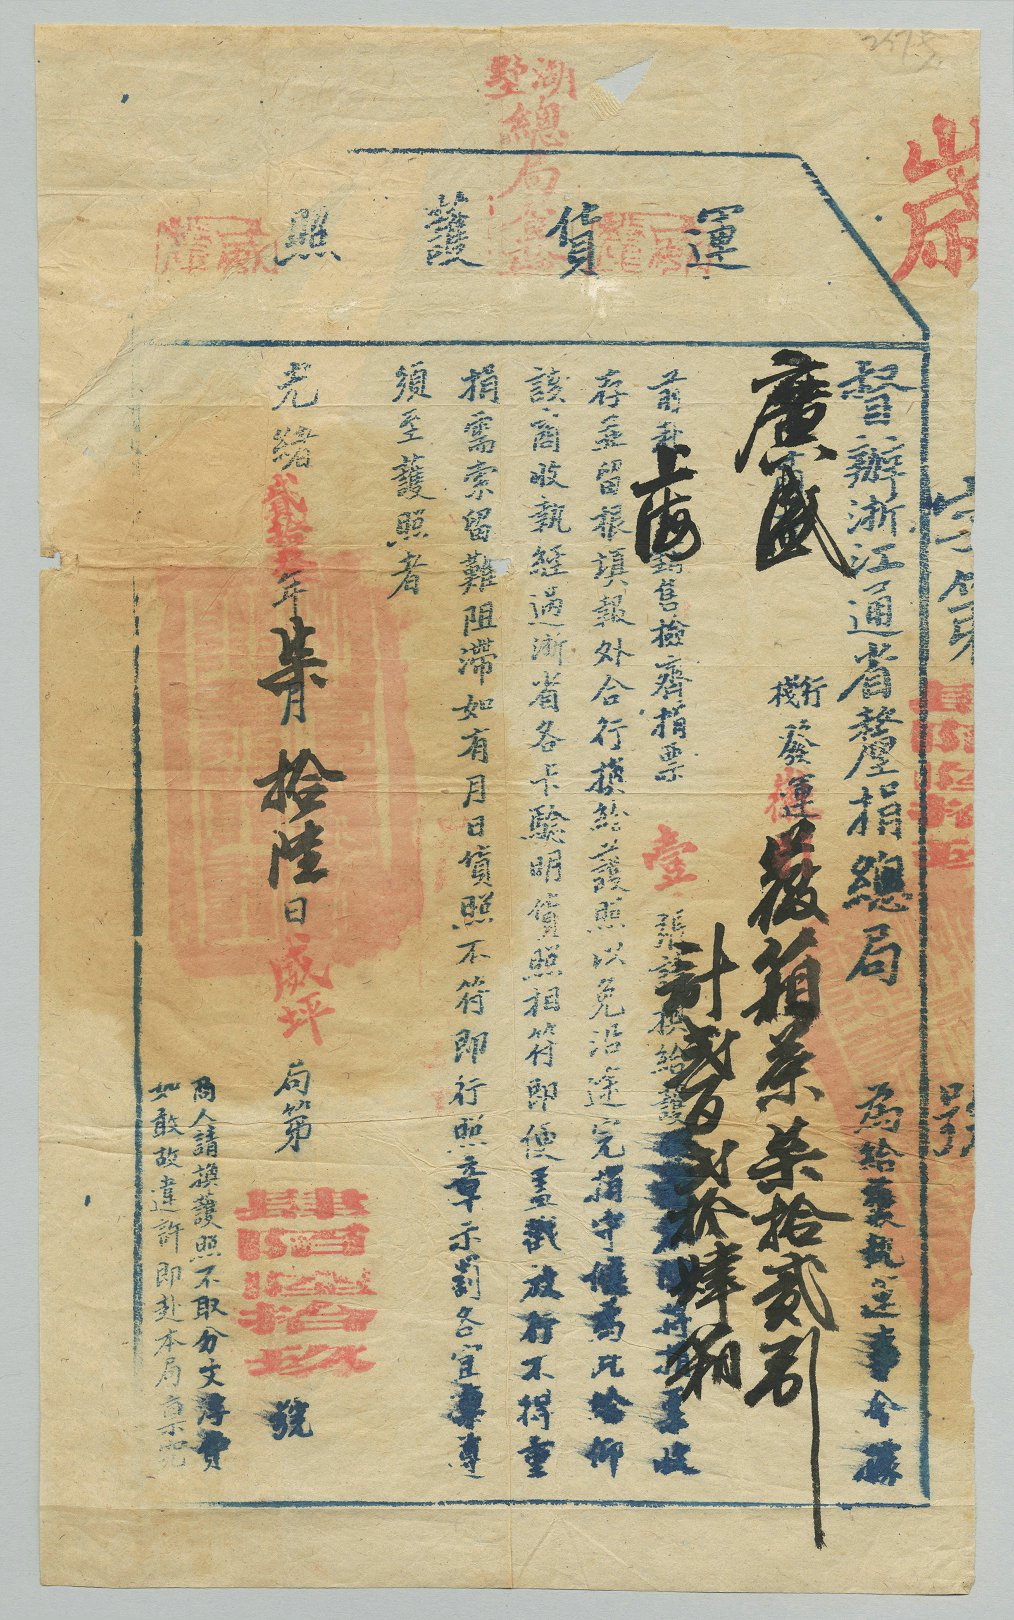 運貨護照
湖墅
總局
督辦浙江通省釐捐總局 為給護執運事今據
廣盛
行棧發運
箱茶柒拾貳引
計貳百貳拾肆箱
前赴
上海
銷售檢齊捐票 壹 張請換給護
存並留根填報外合行換給護照以免沿途完捐守候為此給仰
該商收執經過浙省各卡驗明貨照相符即便蓋戳放行不得重
捐需索留難阻滯如有月日貨照不符即行照章示罰各宜凜遵
須至護照者
光緒貳拾五年柒月拾陸日威坪局第 百 拾玖號
商人請換護照不取分文浮費
如敢故違許即赴本局稟究
字第 號